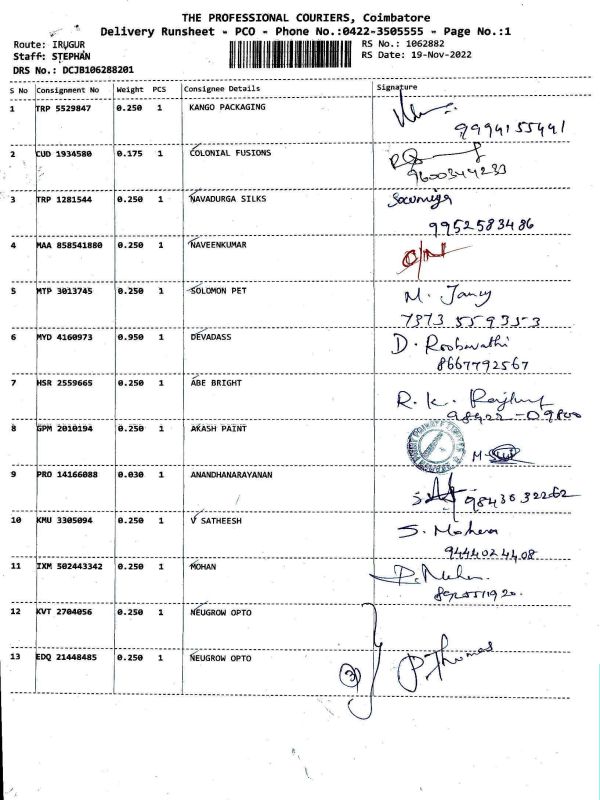 THE PROFESSIONAL COURIERS, Coimbatore
Delivery Runsheet - PCO - Phone No.:0422-3505555 - Page No.:1
Route: IRUGUR RS No.: 1062882
Staff: STEPHAN RS Date: 19-Nov-2022
DRS No.: DCJB106288201
S No Consignment No Weight PCS Consignee Details Signature
1 TRP 5529847 0.250 1 KANGO PACKAGING
9994155441
2 CUD 1934580 0.175 1 COLONIAL FUSIONS
9600344233
3 TRP 1281544 0.250 1 NAVADURGA SILKS Sowmiya
9952583486
4 MAA 858541880 0.250 1 NAVEENKUMAR
5 MTP 3013745 0.250 1 SOLOMON PET M. Jancy
7373 559353
6 MYD 4160973 0.950 1 DEVADASS D.
8667792567
7 HSR 2559665 0.250 1 ABE BRIGHT R. K.
98422-09800
8 GPM 2010194 0.250 1 AKASH PAINT
9 PRO 14166088 0.030 1 ANANDHANARAYANAN
9843632262
10 KMU 3305094 0.250 1 V SATHEESH S.
9444024408
11 IXM 502443342 0.250 1 MOHAN
12 KVT 2704056 0.250 1 NEUGROW OPTO
13 EDQ 21448485 0.250 1 NEUGROW OPTO P Thomas
3